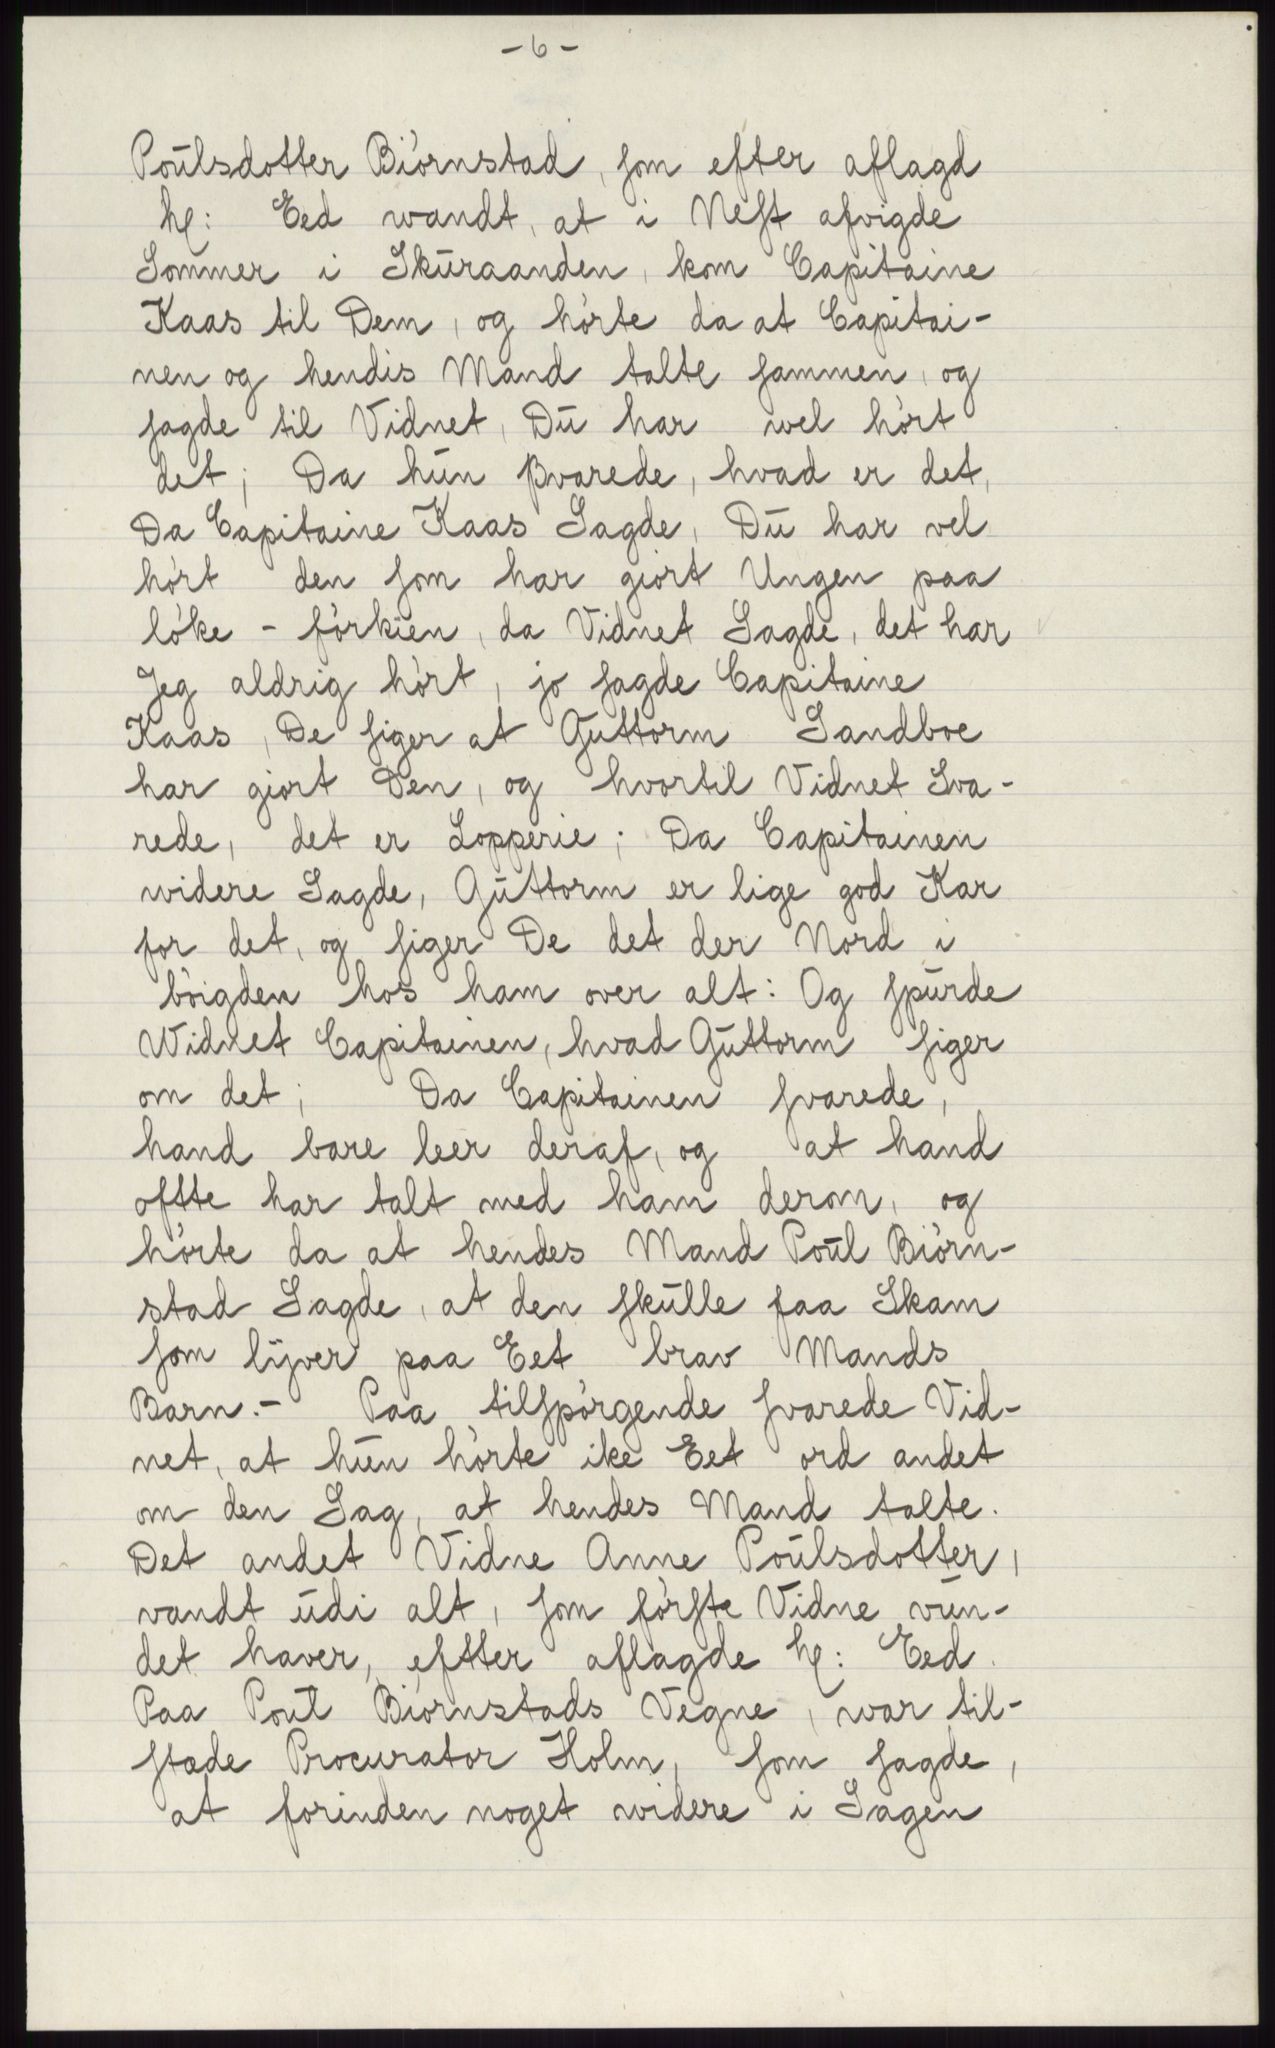 - 6 -
Poŭlsdotter Biórnstad, som efter aflagd
hℓ: Eed wandt, at i Nest afvigde
Sommer i Skŭraanden, kom Capitaine
Kaas til Dem, og hórte da at Capitai-
nen og hendis Mand talte sammen, og
sagde til Vidnet, Dŭ har wel hórt
det; Da hŭn svarede, hvad er det,
Da Capitaine Kaas Sagde, Dŭ har vel
hórt den som har giort Ungen paa
lóke - fórkien, da Vidnet Sagde, det har
Jeg aldrig hórt, jo sagde Capitaine
Kaas, De siger at Guttorm Sandboe
har giort Den, og hvortil Vidnet Sva-
rede, det er Lopperie; Da Capitainen
widere Sagde, Gŭttorm er lige god Kar
for det, og siger De det der Nord i
bóigden hos ham over alt: Og spŭrde
Widnet Capitainen, hvad Gŭttorm siger
om det; Da Capitainen svarede,
hand bare leer deraf, og at hand
offte har talt med ham derom, og
hórte da at hendes Mand Poŭl Biórn-
stad Sagde, at den skŭlle faa Skam
som lijver paa Eet brav Mands
Barn.- Paa tilspórgende svarede Vid-
net, at hŭn hórte ike Eet ord andet
om den Sag, at hendes Mand talte.
Det andet Vidne Anne Poŭlsdotter,
vandt ŭdi alt, som fórste Vidne vŭn-
det haver, eftter aflagde hℓ: Eed.
Paa Poŭl Biórnstads Vegne, war til-
stæde Procurator Holm, som sagde,
at forinden noget widere i Sagen